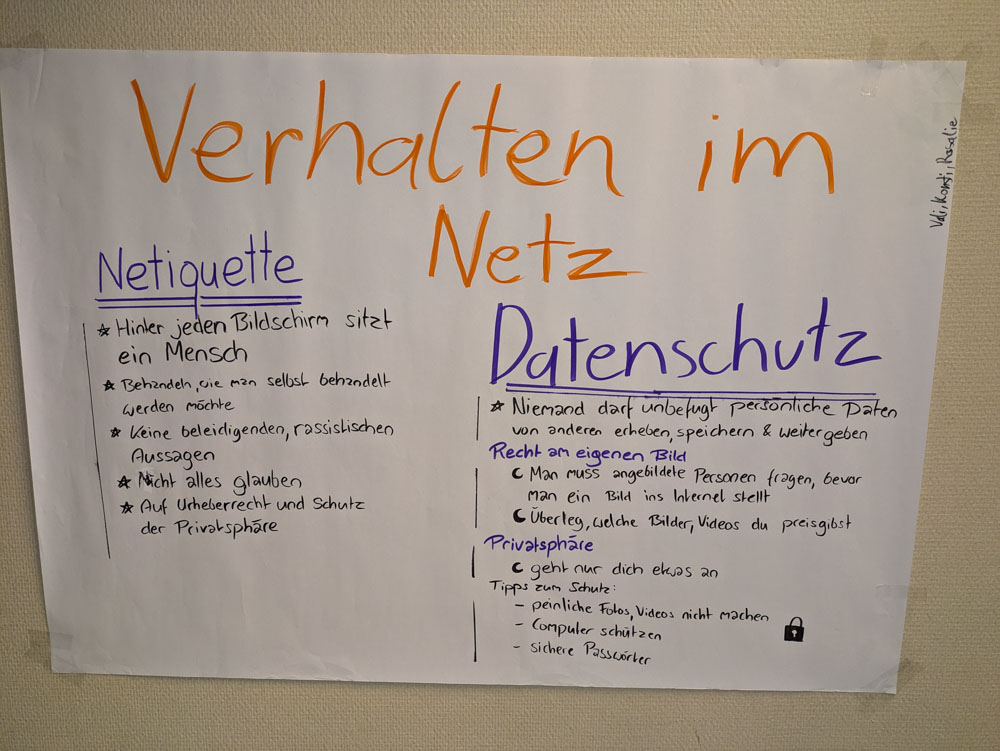 Verhalten im
Netz
Vali, Konsti, Rosalie
Netiquette
Hinter jeden Bildschirm sitzt
ein Mensch
Behandeln, wie man selbst behandelt
werden möchte
Keine beleidigenden, rassistischen
Aussagen
Nicht alles glauben
Auf Urheberrecht und Schutz
der Privatsphäre
Datenschutz
Niemand darf unbefugt persönliche Daten
von anderen erheben, speichern & weitergeben
Recht am eigenen Bild
Man muss angebildete Personen fragen, bevor
man ein Bild ins Internet stellt
Überleg, welche Bilder, Videos du preisgibst
Privatsphäre
geht nur dich etwas an
Tipps zum Schutz:
- peinliche Fotos, Videos nicht machen
- Computer schützen
- sichere Passwörter